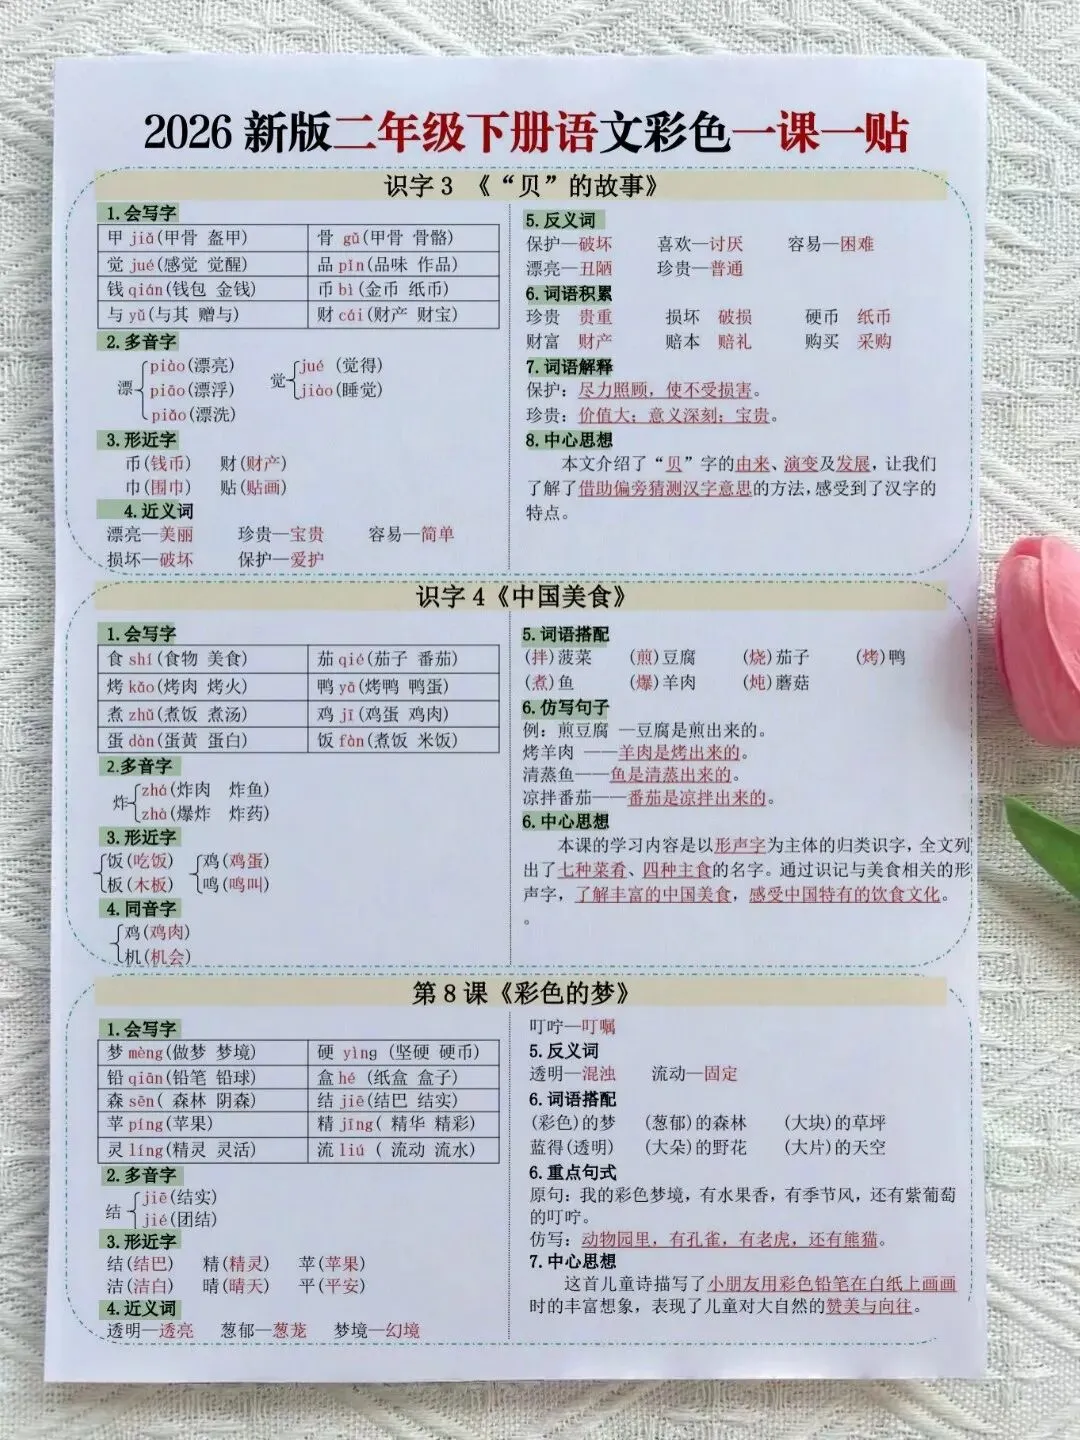 2026新版二年级下册语文彩色一课一贴
识字3 《“贝”的故事》
1.会写字
甲 jiǎ(甲骨 盔甲) 骨 gǔ(甲骨 骨骼)
觉 jué(感觉 觉醒) 品 pǐn(品味 作品)
钱 qián(钱包 金钱) 币 bì(金币 纸币)
与 yǔ(与其 赠与) 财 cái(财产 财宝)
2.多音字
漂 piào(漂亮) piāo(漂浮) piǎo(漂洗)
觉 jué (觉得) jiào(睡觉)
3.形近字
币(钱币) 财(财产)
巾(围巾) 贴(贴画)
4.近义词
漂亮—美丽 珍贵—宝贵 容易—简单
损坏—破坏 保护—爱护
5.反义词
保护—破坏 喜欢—讨厌 容易—困难
漂亮—丑陋 珍贵—普通
6.词语积累
珍贵 贵重 损坏 破损 硬币 纸币
财富 财产 赔本 赔礼 购买 采购
7.词语解释
保护：尽力照顾，使不受损害。
珍贵：价值大；意义深刻；宝贵。
8.中心思想
本文介绍了“贝”字的由来、演变及发展，让我们
了解了借助偏旁猜测汉字意思的方法，感受到了汉字的
特点。
识字4《中国美食》
1.会写字
食 shí(食物 美食) 茄 qié(茄子 番茄)
烤 kǎo(烤肉 烤火) 鸭 yā(烤鸭 鸭蛋)
煮 zhǔ(煮饭 煮汤) 鸡 jī(鸡蛋 鸡肉)
蛋 dàn(蛋黄 蛋白) 饭 fàn(煮饭 米饭)
2.多音字
炸 zhá(炸肉 炸鱼) zhà(爆炸 炸药)
3.形近字
饭(吃饭) 鸡(鸡蛋)
板(木板) 鸣(鸣叫)
4.同音字
鸡(鸡肉)
机(机会)
5.词语搭配
(拌)菠菜 (煎)豆腐 (烧)茄子 (烤)鸭
(煮)鱼 (爆)羊肉 (炖)蘑菇
6.仿写句子
例：煎豆腐 —豆腐是煎出来的。
烤羊肉 ——羊肉是烤出来的。
清蒸鱼——鱼是清蒸出来的。
凉拌番茄——番茄是凉拌出来的。
6.中心思想
本课的学习内容是以形声字为主体的归类识字，全文列
出了七种菜肴、四种主食的名字。通过识记与美食相关的形
声字，了解丰富的中国美食，感受中国特有的饮食文化。
。
第8课《彩色的梦》
1.会写字
梦 mèng(做梦 梦境) 硬 yìng (坚硬 硬币)
铅 qiān(铅笔 铅球) 盒 hé (纸盒 盒子)
森 sēn( 森林 阴森) 结 jiē(结巴 结实)
苹 píng(苹果) 精 jīng( 精华 精彩)
灵 líng(精灵 灵活) 流 liú ( 流动 流水)
2.多音字
结 jiē(结实) jié(团结)
3.形近字
结(结巴) 精(精灵) 苹(苹果)
洁(洁白) 晴(晴天) 平(平安)
4.近义词
透明—透亮 葱郁—葱茏 梦境—幻境
叮咛—叮嘱
5.反义词
透明—混浊 流动—固定
6.词语搭配
(彩色)的梦 (葱郁)的森林 (大块)的草坪
蓝得(透明) (大朵)的野花 (大片)的天空
6.重点句式
原句：我的彩色梦境，有水果香，有季节风，还有紫葡萄
的叮咛。
仿写：动物园里，有孔雀，有老虎，还有熊猫。
7.中心思想
这首儿童诗描写了小朋友用彩色铅笔在白纸上画画
时的丰富想象，表现了儿童对大自然的赞美与向往。